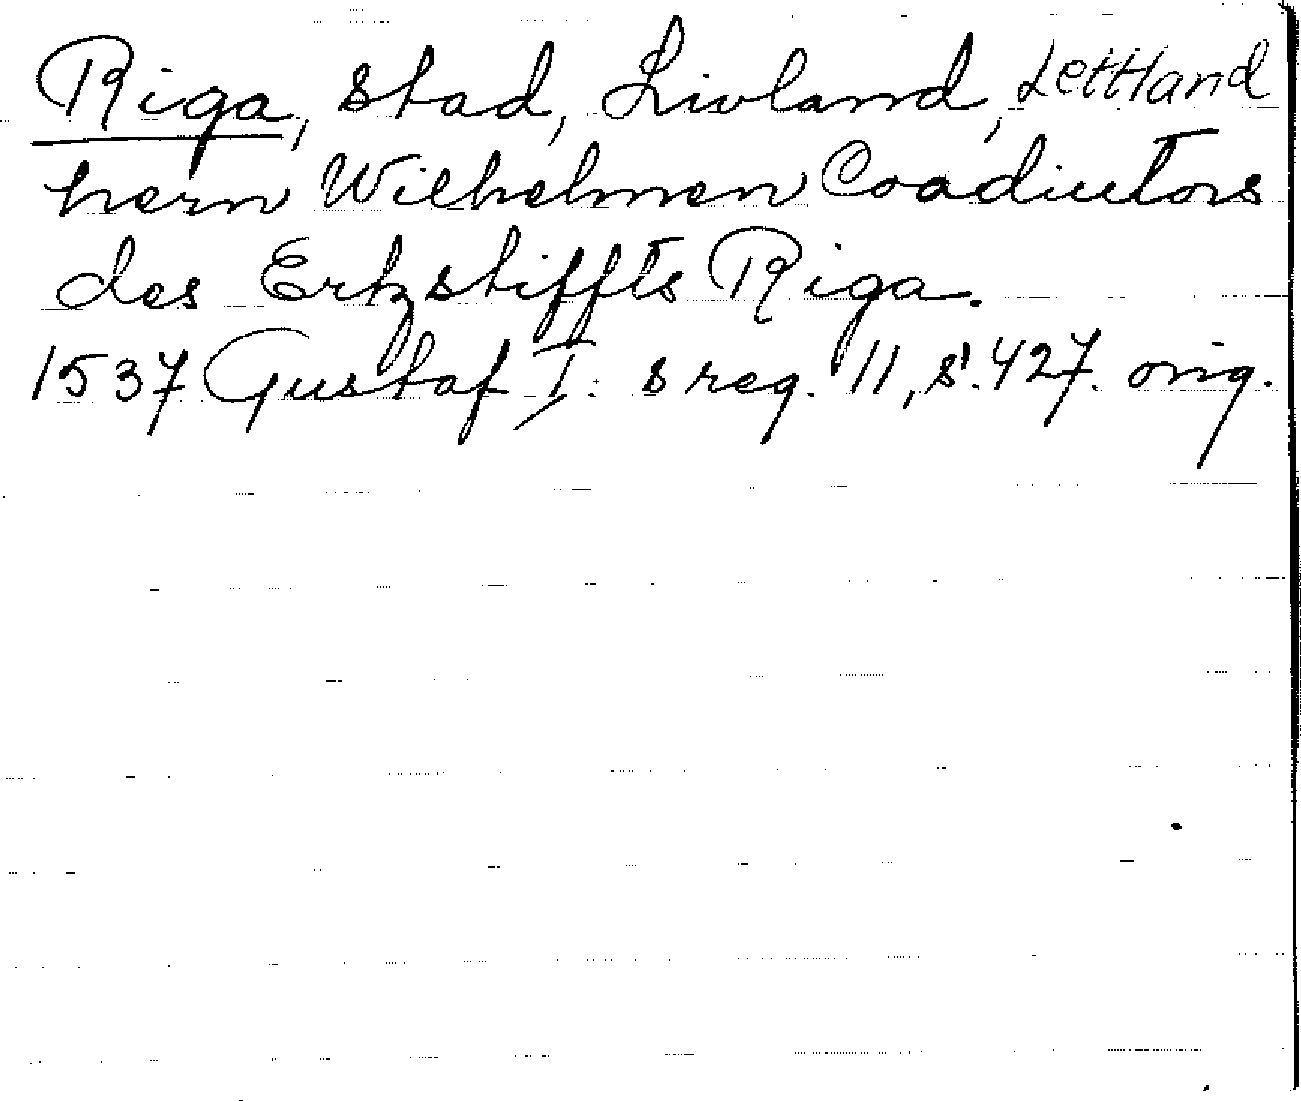 Riga, stad, Livland, Lettland
hern Wilhelmen Coadiutors
des Ertzstiffts Riga.
1537 Gustaf I: s reg. 11, s. 427. orig.